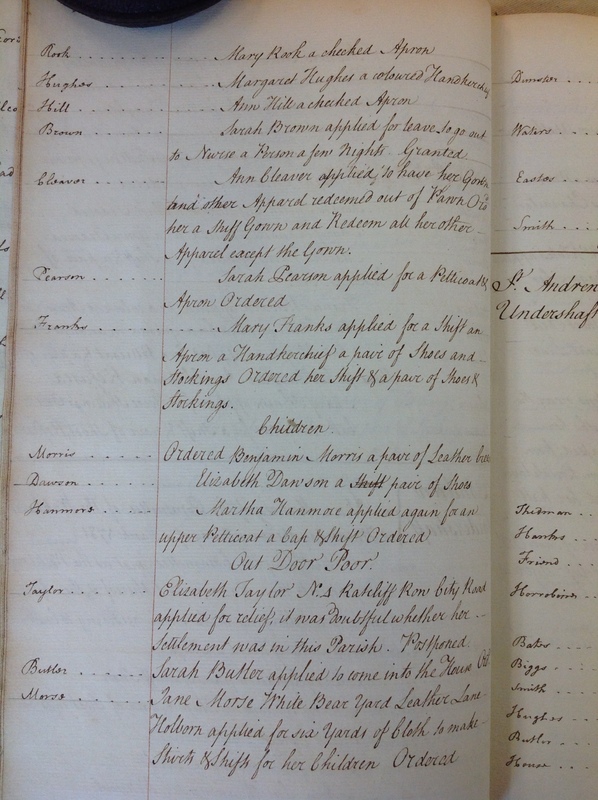 Rook . . . . . . . . . . Mary Rook a checked Apron
Hughes . . . . . . . . . . Margaret Hughes a coloured Handkerchief
Hill . . . . . . . . . . Ann Hill a checked Apron
Brown . . . . . . . . . . Sarah Brown applied for leave to go out
to Nurse a Person a few Nights Granted
Cleaver . . . . . . . . Ann Cleaver applied to have her Gown
and other Apparel redeemed out of Pawn Ord
her a Stuff Gown and Redeem all her other
Apparel except the Gown.
Pearson . . . . . . Sarah Pearson applied for a Petticoat &
Apron Ordered
Franks . . . . . . . Mary Franks applied for a Shift an
Apron a Handkerchief a pair of Shoes and
Stockings Ordered her Shift & a pair of Shoes &
Stockings.
Children.
Morris . . . . . . Ordered Benjamin Morris a pair of Leather
Dawson . . . . . . Elizabeth Dawson a Shift pair of Shoes
Hanmore . . . . . . Martha Hanmore applied again for an
upper Petticoat a Cap & Shift Ordered
Out Door Poor.
Taylor . . . . . . Elizabeth Taylor No. 4 Ratcliff Row City Road
applied for relief, it was Doubtful whether her
Settlement was in this Parish. Postponed
Butler . . . . . . . Sarah Butler applied to come into the House Ord
Morse . . . . . . . Jane Morse White Bear Yard Leather Lane
Holborn applied for six Yards of Cloth to make
Shirts & Shifts for her Children Ordered
Dunster . . .
Waters . . . .
Eastes . . .
Smith . . . .
St. Andrew
Undershaft
Thedman . . .
Hanks . . .
Friend . . .
Bates . . .
Biggs . . . .
Smith . . .
Hughes . . .
Butler . . .
House . . .